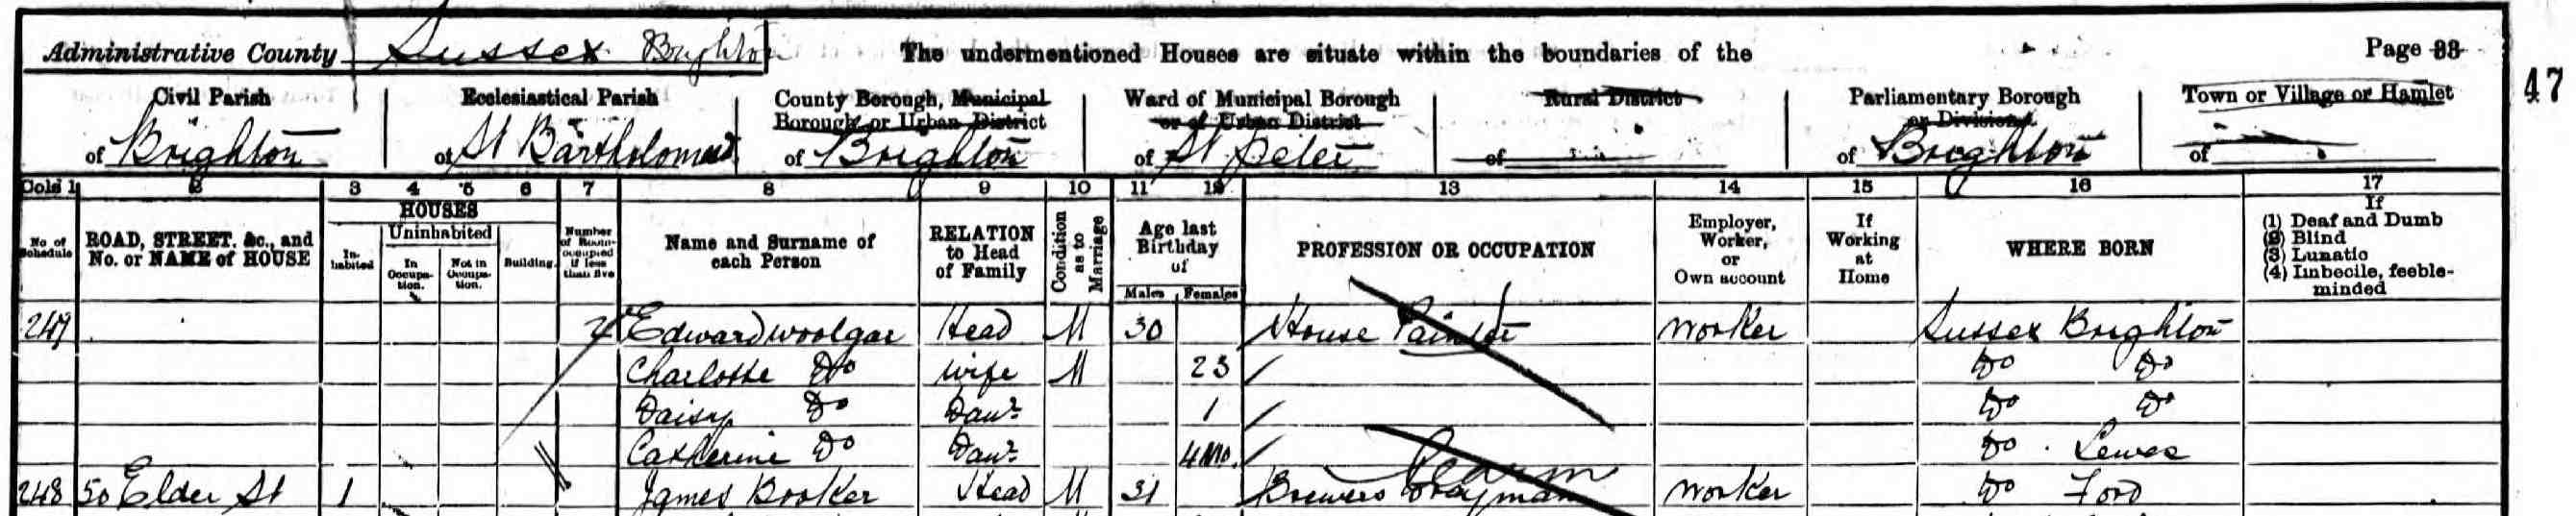 Administrative County Sussex Brighton The undermentioned Houses are situate within the boundaries of the Page 33
47
Civil Parish Ecclesiastical Parish County Borough, Municipal Ward of Municipal Borough Rural District Parliamentary Borough Town or Village or Hamlet
Borough or Urban District or of Urban District or Division
of Brighton of St Bartholomew of Brighton of St Peter of of Brighton of
Cols 1 2 3 4 5 6 7 8 9 10 11 12 13 14 15 16 17
No. of Schedule
ROAD, STREET, &c., and
No. or NAME of HOUSE
HOUSES
In-
habited
Uninhabited
In
Occupa-
tion.
Not in
Occupa-
tion.
Building.
Number
of Rooms
occupied
if less
than five
Name and Surname of
each Person
RELATION
to Head
of Family
Condition
as to
Marriage
Age last
Birthday
of
Males Females
PROFESSION OR OCCUPATION
Employer,
Worker,
or
Own account
If
Working
at
Home
WHERE BORN
If
(1) Deaf and Dumb
(2) Blind
(3) Lunatic
(4) Imbecile, feeble-
minded
249 Edward Woolgar Head M 30 House Painter Worker Sussex Brighton
Charlotte Do Wife M 23 Do Do
Daisy Do Daur 1 Do Do
Catherine Do Daur 4 Mo. Do Lewes
248 50 Elder St 1 James Booker Head M 31 Brewers Drayman Worker Do Ford